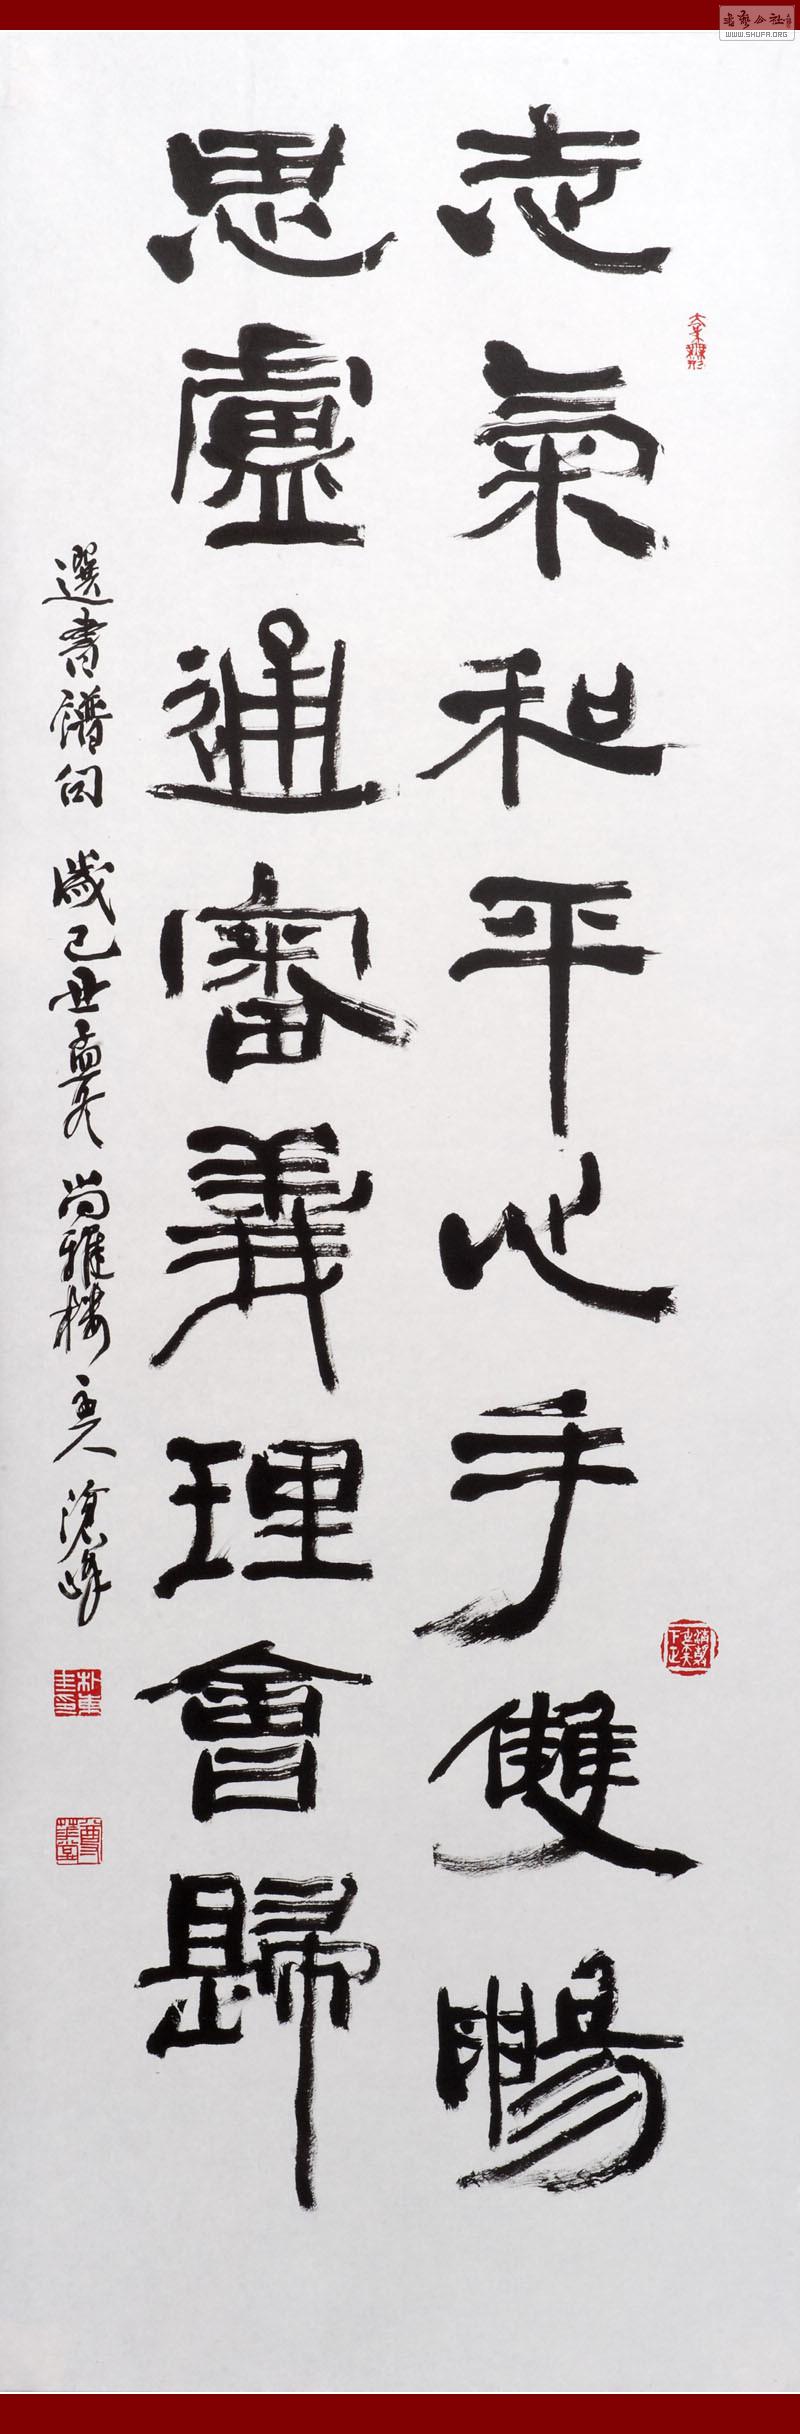 志氣和平心手雙暢
思慮通審義理會歸
選書譜句 歲己丑孟冬 尚雅樓主人 滄峰
WWW.SHUFA.ORG